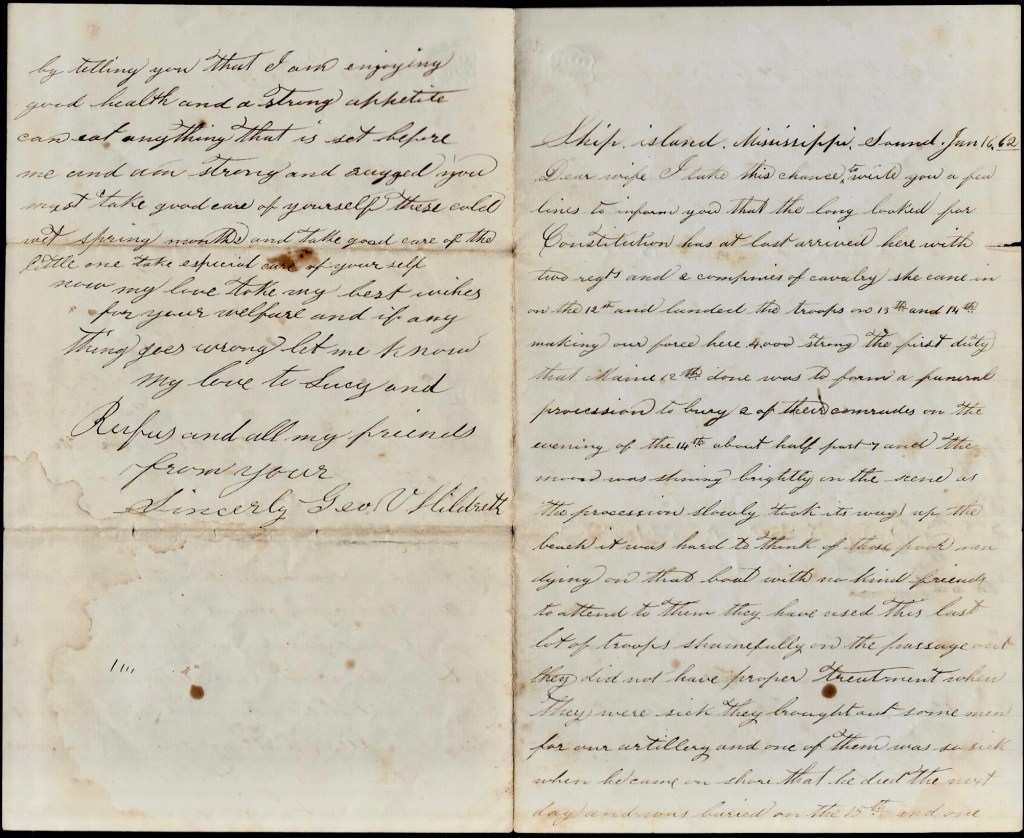 Ship. island. Mississippi. Sound. Jan 16, 62
Dear wife I take this chance, to write you a few
lines to inform you that the long looked for
Constitution has at last arrived here with
two regts and 2 companies of cavalry she came in
on the 12th and landed the troops on 13th and 14th
making our force here 4,000 strong the first duty
that Maine 12th done was to form a funeral
procession to bury 2 of their comrades on the
evening of the 14th about half past 7 and the
moon was shining brightly on the scene as
the procession slowly took its way up the
beach it was hard to think of those poor men
dying on that boat with no kind friends
to attend to them they have used this last
lot of troops shamefully on the passage out
they did not have proper treatment when
they were sick they brought out some men
for our artillery and one of them was so sick
when he came on shore that he died the next
day and was buried on the 15th and one
by telling you that I am enjoying
good health and a strong appetite
can eat anything that is set before
me and am strong and rugged you
must take good care of yourself these cold
wet spring months and take good care of the
little one take especial care of your self
now my love take my best wishes
for your welfare and if any
thing goes wrong let me know
my love to Lucy and
Rufus and all my friends
from your
Sincerly Geo. V Hildreth